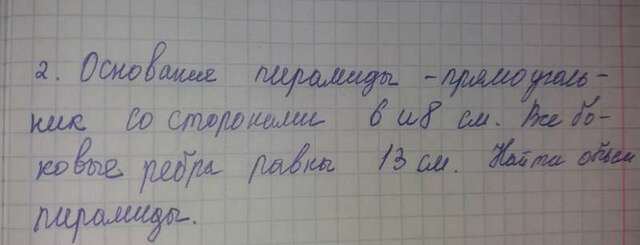 2. Основание пирамиды - прямоуголь-
ник со сторонами 6 и 8 см. Все бо-
ковые ребра равны 13 см. Найти объем
пирамиды.